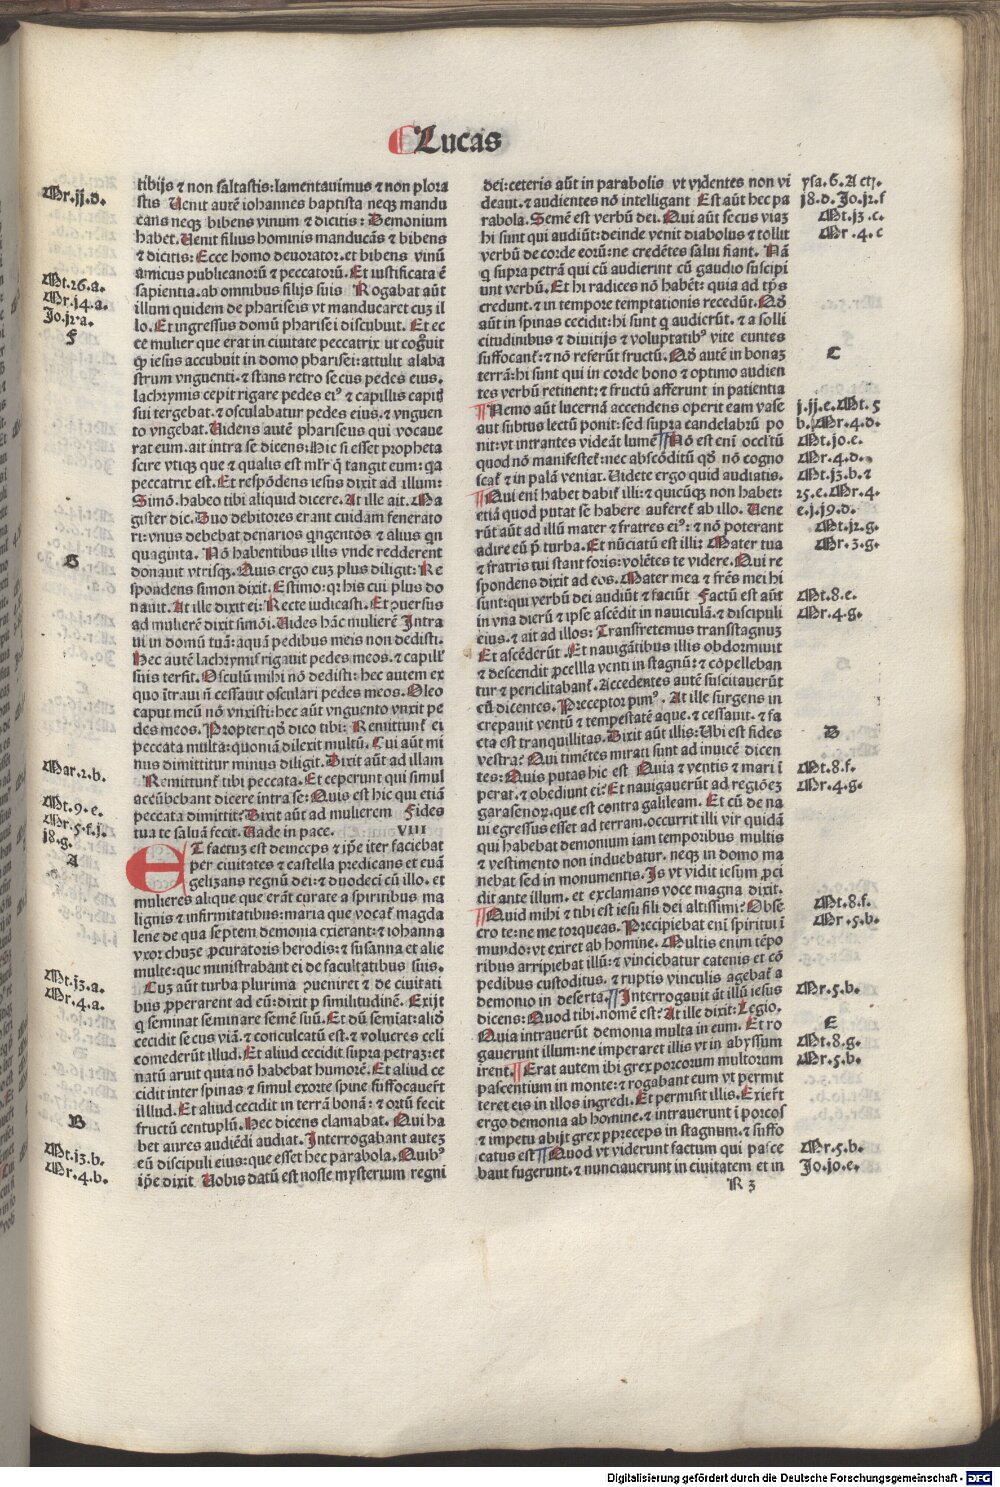 Lucas
tibijs ⁊ non saltastis: lamentauimus ⁊ non plora
stis Uenit autē iohannes baptista neqꝫ mandu
cans neqꝫ bibens vinum ⁊ dicitis: Demonium
habet. Uenit filius hominis manducās ⁊ bibens
⁊ dicitis: Ecce homo deuorator. et bibens vinū
amicus publicanorū ⁊ peccatorū. Et iustificata ē
sapientia. ab omnibus filijs suis Rogabat aūt
illum quidem de phariseis vt manducaret cuꝫ il
lo. Et ingressus domū pharisei discubuit. Et ec
ce mulier que erat in ciuitate peccatrix ut cognuit
ꝙ iesus accubuit in domo pharisei: attulit alaba
strum vnguenti. ⁊ stans retro secus pedes eius.
lachrymis cepit rigare pedes eiꝰ ⁊ capillis capiŧ
sui tergebat. ⁊ osculabatur pedes eius. ⁊ vnguen
to vngebat. Uidens autē phariseus qui vocaue
rat eum. ait intra se dicens: Hic si esset propheta
sciret vtiqꝫ que ⁊ qualis est mlr̄ q̄ tangit eum: qa
peccatrix est. Et respōdens iesus dixit ad illum:
Simō. habeo tibi aliquid dicere. At ille ait. Ma
gister dic. Duo debitores erant cuidam fenerato
ri: vnus debebat denarios qngentos ⁊ alius qn
quaginta. Nō habentibus illis vnde redderent
donauit vtrisqꝫ. Quis ergo euꝫ plus diligit: Re
spondens simon dixit. Estimo: qꝛ his cui plus do
nauit. At ille dixit ei: Recte iudicasti. Et ꝯuersus
ad mulierē dixit simōi. Uides hāc mulierē Intra
ui in domū tuā: aquā pedibus meis non dedisti.
Hec autē lachrymis rigauit pedes meos. ⁊ capill'
suis tersit. Osculū mihi nō dedisti: hec autem ex
quo ītraui n̄ cessauit osculari pedes meos. Oleo
caput meū nō vnxisti: hec aūt vnguento vnxit pe
des meos. Propter qđ dico tibi: Remittunt̄ ei
peccata multa: quoniā dilexit multū. Cui aūt mi
nus dimittitur minus diligit. Dixit aūt ad illam
Remittunt̄ tibi peccata. Et ceperunt qui simul
accūbebant dicere intra se: Quis est hic qui etiā
peccata dimittit? Dixit aūt ad mulierem Fides
tua te saluā fecit. Uade in pace. VIII
ET factuꝫ est deinceps ⁊ ip̄e iter faciebat
per ciuitates ⁊ castella predicans et euā
gelizans regnū dei: ⁊ duodeci cū illo. et
mulieres alique que erāt curate a spiritibus ma
lignis ⁊ infirmitatibus: maria que vocat̄ magda
lene de qua septem demonia exierant: ⁊ iohanna
vxor chuze ꝓcuratoris herodis: ⁊ susanna et alie
multe: que ministrabant ei de facultatibus suis.
Cuꝫ aūt turba plurima ꝯueniret ⁊ de ciuitati
bus ꝓperarent ad eū: dixit ꝑ similitudinē. Exijt
q seminat seminare semē suū. Et dū semīat: aliđ
cecidit secus viā. ⁊ conculcatū est. ⁊ volucres celi
comederūt illud. Et aliud cecidit supra petraꝫ: et
natū aruit quia nō habebat humorē. Et aliud ce
cidit inter spinas ⁊ simul exorte spine suffocauer̄t
illlud. Et aliud cecidit in terrā bonā: ⁊ ortū fecit
fructū centuplū. Hec dicens clamabat. Qui ha
bet aures audiēdi audiat. Interrogabant auteꝫ
eū discipuli eius: que esset hec parabola. Quibꝰ
ip̄e dixit Uobis datū est nosse mysterium regni
dei: ceteris aūt in parabolis vt videntes non vi
deant. ⁊ audientes nō intelligant Est aūt hec pa
rabola. Semē est verbū dei. Qui aūt secus viaꝫ
hi sunt qui audiūt: deinde venit diabolus ⁊ tollit
verbū de corde eorū: ne credētes salui fiant. Nā
q supra petrā qui cū audierint cū gaudio suscipi
unt verbū. Et hi radices nō habēt: quia ad tp̄s
credunt. ⁊ in tempore temptationis recedūt. Qđ
aūt in spinas cecidit: hi sunt q audierūt. ⁊ a solli
citudinibus ⁊ diuitijs ⁊ voluptatibꝰ vite euntes
suffocant̄: ⁊ nō referūt fructū. Qđ autē in bonaꝫ
terrā: hi sunt qui in corde bono ⁊ optimo audien
tes verbū retinent: ⁊ fructū afferunt in patientia
Nemo aūt lucernā accendens operit eam vase
aut subtus lectū ponit: sed supra candelabrū po
nit: vt intrantes videāt lumē Nō est enī occl'tū
quod nō manifestet̄: nec abscōditū qđ nō cogno
scat̄ ⁊ in palā veniat. Uidete ergo quid audiatis.
Qui enī habet dabit̄ illi: ⁊ quicūqꝫ non habet:
etiā quod putat se habere auferet̄ ab illo. Uene
rūt aūt ad illū mater ⁊ fratres eiꝰ: ⁊ nō poterant
adire eū p̄ turba. Et nūciatū est illi: Mater tua
⁊ fratris tui stant foris: volētes te videre. Qui re
spondens dixit ad eos. Mater mea ⁊ frēs mei hi
sunt: qui verbū dei audiūt ⁊ faciūt Factū est aūt
in vna dierū ⁊ ipse ascēdit in nauiculā. ⁊ discipuli
eius. ⁊ ait ad illos: Transfretemus transstagnuꝫ
Et ascēderūt. Et nauigātibus illis obdormiuit
⁊ descendit ꝓcella venti in stagnū: ⁊ cōpelleban
tur ⁊ periclitabant̄. Accedentes autē suscitauerūt
eū dicentes. Preceptor pimꝰ. At ille surgens in
crepauit ventū ⁊ tempestatē aque. ⁊ cessauit. ⁊ fa
cta est tranquillitas. Dixit aūt illis: Ubi est fides
vestra? Qui timētes mirati sunt ad inuicē dicen
tes: Quis putas hic est Quia ⁊ ventis ⁊ mari ī
perat. ⁊ obediunt ei? Et nauigauerūt ad regiōeꝫ
garasenoꝝ. que est contra galileam. Et cū de na
ui egressus esset ad terram. occurrit illi vir quidā
qui habebat demonium iam temporibus multis
⁊ vestimento non induebatur. neqꝫ in domo ma
nebat sed in monumentis. Is vt vidit iesum ꝓci
dit ante illum. et exclamans voce magna dixit.
Quid mihi ⁊ tibi est iesu fili dei altissimi? Obse
cro te: ne me torqueas. Precipiebat enī spiritui ī
mundo: vt exiret ab homine. Multis enim tēpo
ribus arripiebat illū: ⁊ vinciebatur catenis et cō
pedibus custoditus. ⁊ ruptis vinculis agebat̄ a
demonio in deserta. Interrogauit āt illū iesus
dicens: Quod tibi. nomē est? At ille dixit: Legio.
Quia intrauerūt demonia multa in eum. Et ro
gauerunt illum: ne imperaret illis vt in abyssum
irent. Erat autem ibi grex porcorum multorum
pascentium in monte: ⁊ rogabant eum vt permit
teret eis in illos ingredi. Et permisit illis. Exier̄t
ergo demonia ab homine. ⁊ intrauerunt ī porcos
⁊ impetu abijt grex ppreceps in stagnum. ⁊ suffo
catus est Quod vt viderunt factum qui pasce
bant fugerunt. ⁊ nunciauerunt in ciuitatem et in
R 3
Mr.jj.d.
Mt.26.a.
Mr.j4.a.
Jo.j2.a.
F
G
Mar.2.b.
Mt.9.e.
Mr.5.f.j.
j8.g.
A
Mt.j3.a.
Mr.4.a.
B
Mt.j3.b.
Mr.4.b.
ysa.6.Act.
j8.d.Jo.j2.f
Mt.j3.c.
Mr.4.c
C
j.jj.e.Mt.5
b.Mr.4.d.
Mt.jo.c.
Mr.4.d.
Mt.j3.b.⁊
25.e.Mr.4.
e.j.j9.d.
Mt.j2.g.
Mr.3.g.
Mt.8.e.
Mr.4.g.
D
Mt.8.f.
Mr.4.g.
Mt.8.f.
Mr.5.b.
Mr.5.b.
E
Mt.8.g.
Mr.5.b.
Mr.5.b.
Jo.jo.e.
Digitalisierung gefördert durch die Deutsche Forschungsgemeinschaft - DFG